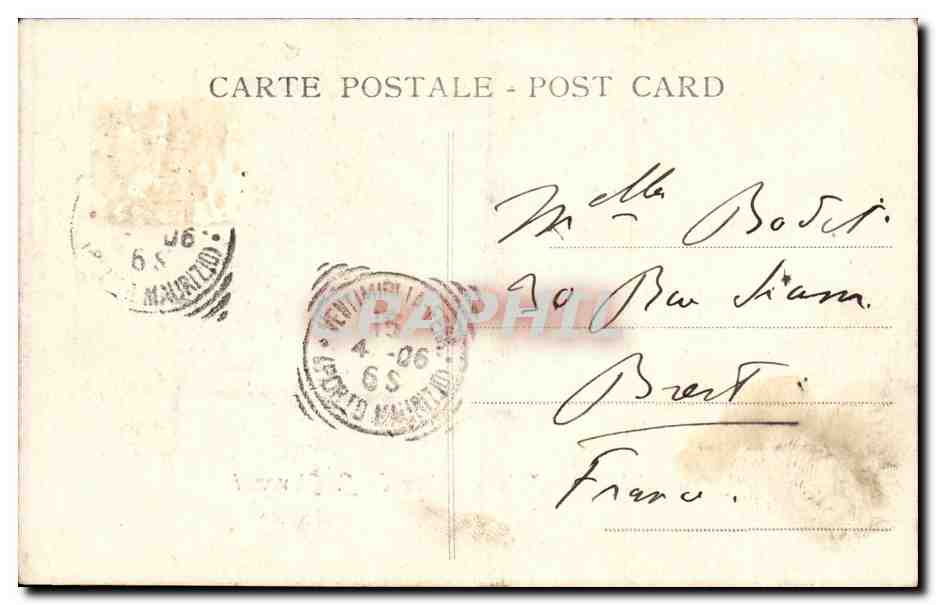 CARTE POSTALE - POST CARD
Melle Bodet.
30 Rue Siam.
Brest.
France.
VENTIMIGLIA
4 - 06
6 S
(PORTO MAURIZIO)
- 06
6 S
MAURIZIO)
CPAPHIL